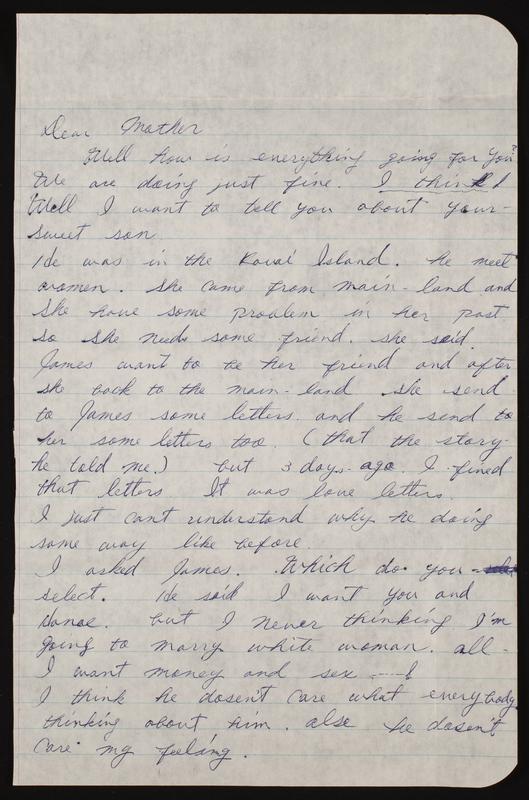 Dear Mother
Well how is everything going for you?
We are doing just fine. I think!
Well I want to tell you about your
sweet son
He was in the Kauai Island. he meet
women. She came from main-land and
she have some problem in her past
so she needs some friend. she said.
James want to be her friend and after
she back to the main-land she send
to James some letters. and he send to
her some letters too. (that the story
he told me.) but 3 days ago. I fined
that letters. It was love letters.
I just cant understand why he doing
same way like before.
I asked James. Which do you
select. He said I want you and
Hanae. but I never thinking I'm
going to marry white woman. all
I want money and sex ---!
I think he dosen't care what everybody
thinking about him. also he dosen't
care my feeling.